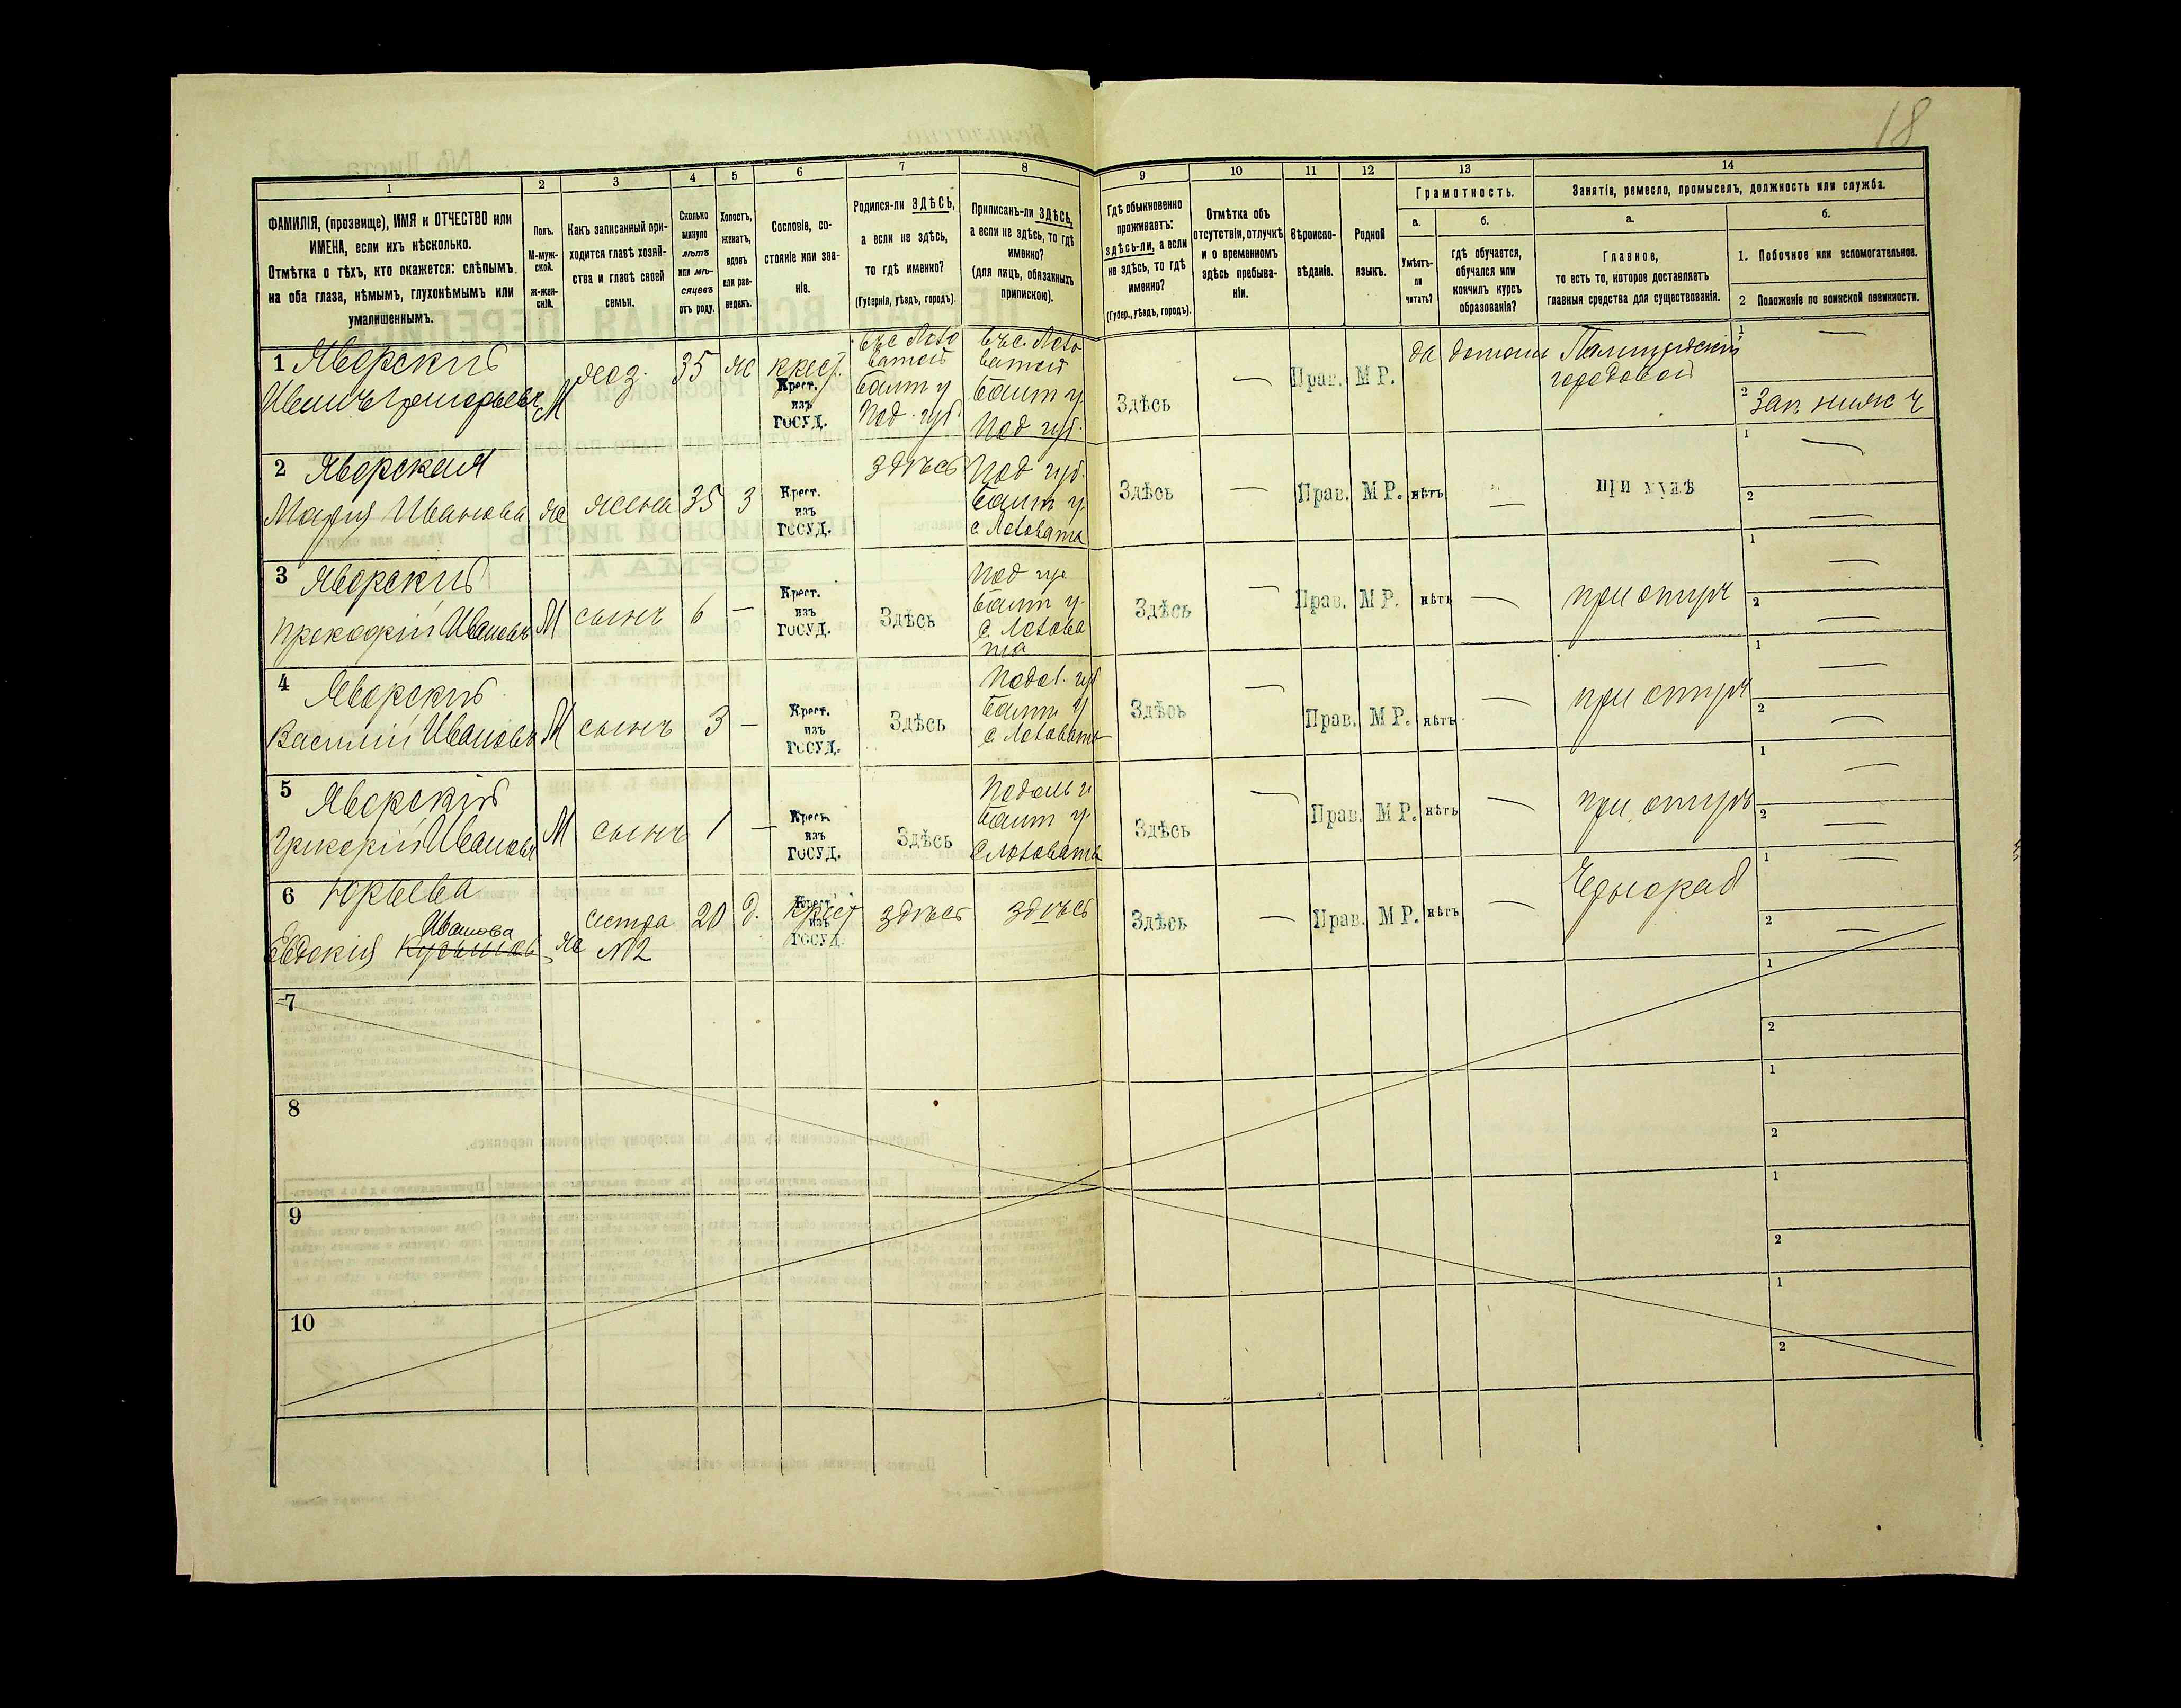 18
1
2
3
4
5
6
7
8
9
10
11
12
13
14
ФАМИЛІЯ, (прозвище), ИМЯ и ОТЧЕСТВО или
ИМЕНА, если ихъ нѣсколько.
Отмѣтка о тѣхъ, кто окажется: слѣпымъ
на оба глаза, нѣмымъ, глухонѣмымъ или
умалишеннымъ.
Полъ.
М-муж-
ской.
ж-жен-
скій.
Какъ записанный при-
ходится главѣ хозяй-
ства и главѣ своей
семьи.
Сколько
минуло
лѣтъ
или мѣ-
сяцевъ
отъ роду.
Холостъ,
женатъ,
вдовъ
или раз-
веденъ.
Сословіе, со-
стояніе или зва-
ніе.
Родился-ли ЗДѢСЬ,
а если не здѣсь,
то гдѣ именно?
(Губернія, уѣздъ, городъ).
Приписанъ-ли ЗДѢСЬ,
а если не здѣсь, то гдѣ
именно?
(для лицъ, обязанныхъ
припискою).
Гдѣ обыкновенно
проживаетъ:
здѣсь-ли, а если
не здѣсь, то гдѣ
именно?
(Губер., уѣздъ, городъ).
Отмѣтка объ
отсутствіи, отлучкѣ
и о временномъ
здѣсь пребыва-
ніи.
Вѣроиспо-
вѣданіе.
Родной
языкъ.
Грамотность.
а.
б.
Умѣетъ-
ли
читать?
гдѣ обучается,
обучался или
кончилъ курсъ
образованія?
Занятіе, ремесло, промыселъ, должность или служба.
а.
б.
Главное,
то есть то, которое доставляетъ
главныя средства для существованія.
1. Побочное или вспомогательное.
2 Положеніе по воинской повинности.
1 Яворскій
Иванъ Григорьевъ М хоз. 35 ж крест.
Крест.
изъ
ГОСУД.
въ с. Лозо
ватой
Балт у
Под. губ
въ с. Лозо
ватой
Балт у.
Под губ.
Здѣсь — Прав. М Р. да дома
городовой
1 —
2 Зап нижн ч
2 Яворская
Мария Иванова ж жена 35 з
Крест.
изъ
ГОСУД.
здѣсь
Под губ.
Балт у.
с Лозовата
Здѣсь — Прав. М Р. нѣтъ — при мужѣ
1 —
2 —
3 Яворскій
Прокофій Ивановъ М сынъ 6 —
Крест.
изъ
ГОСУД.
Здѣсь
Под гу.
Балт у.
с. Лозова
та
Здѣсь — Прав. М Р. нѣтъ — при отцѣ
1 —
2 —
4 Яворскій
Василий Ивановъ М сынъ 3 —
Крест.
изъ
ГОСУД.
Здѣсь
Подол. губ
Балт у
с Лозовата
Здѣсь — Прав. М Р. нѣтъ — при отцѣ
1 —
2 —
5 Яворскій
Григорій Ивановъ М сынъ 1 —
Крест.
изъ
ГОСУД.
Здѣсь
Подоль г
Балт у.
с Лозовата
Здѣсь — Прав. М Р. нѣтъ — при отцѣ
1 —
2 —
6 Юрьева
Иванова
Евдокия ж сестра 20 д.
№2
Крест.
изъ
ГОСУД.
здѣсь здѣсь Здѣсь — Прав. М Р. нѣтъ —
1 —
2 —
7
1
2
8
1
2
9
1
2
10
1
2